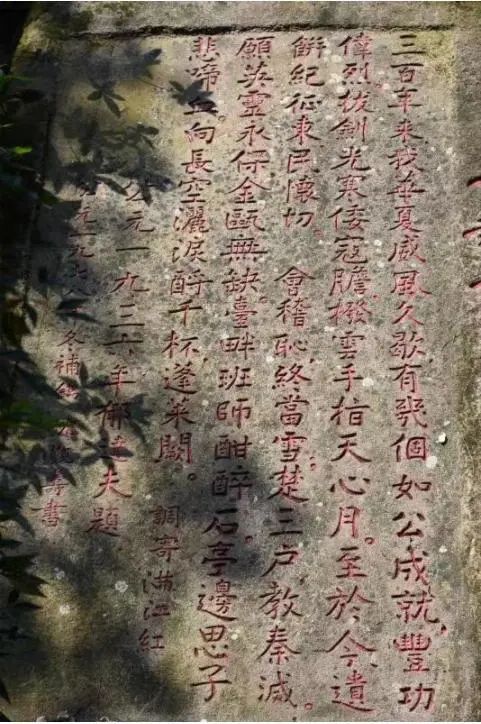 三百年來我華夏威風久歇有幾個如公成就，豐功
偉烈拔劍光寒倭寇膽，撥雲手指天心月。至於今遺
餅紀征東民懷切。 會稽恥終當雪，楚三戶教秦滅。
願英靈永保金甌無缺。臺畔班師酣醉石亭邊思子
悲啼血。向長空灑淚酹千杯蓬萊闕。
調寄滿江紅
公元一九三六年郁達夫題
公元一九七八 冬補鐫 壽書